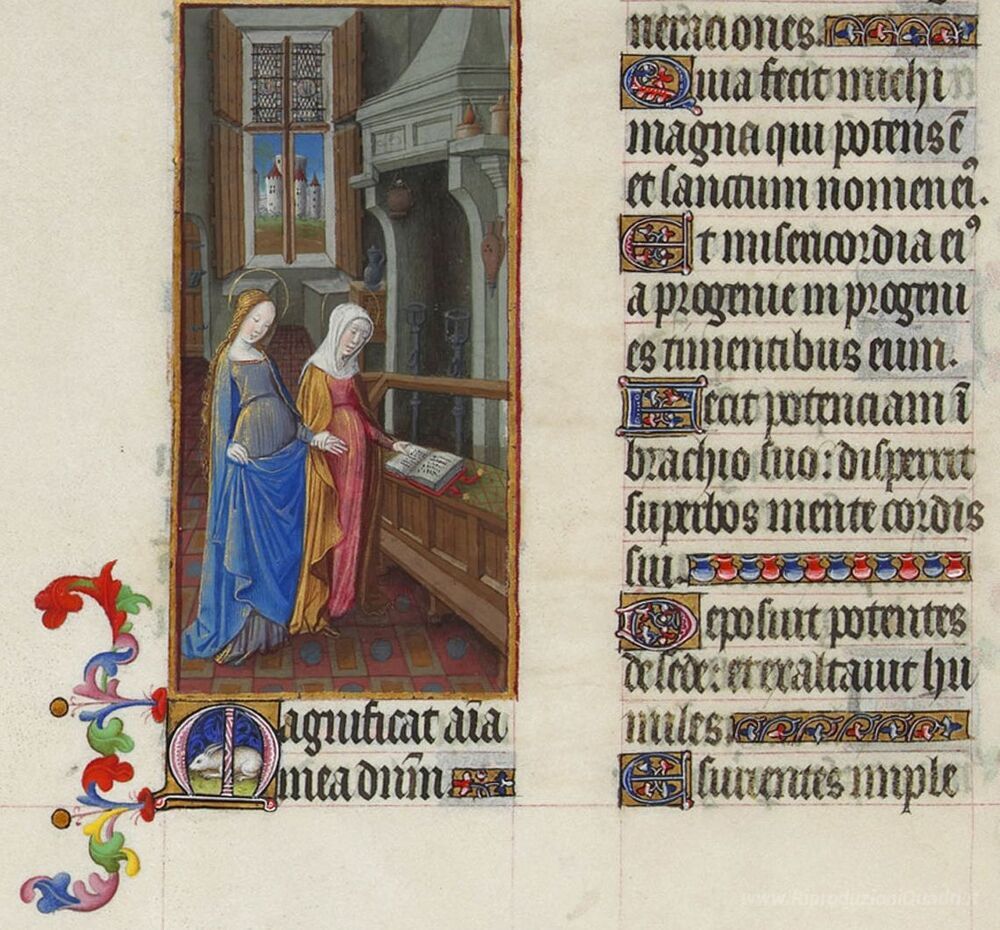 Magnificat aīa
mea dn̄m
neraciones.
Quia fecit michi
magna qui potens ē
et sanctum nomen eiꝰ.
Et misericordia eiꝰ
a progenie in progeni
es timentibus eum.
Fecit potenciam ī
brachio suo: dispersit
superbos mente cordis
sui.
Deposuit potentes
de sede: et exaltauit hu
miles.
Esurientes imple
www.RiproduzioniQuadri.it